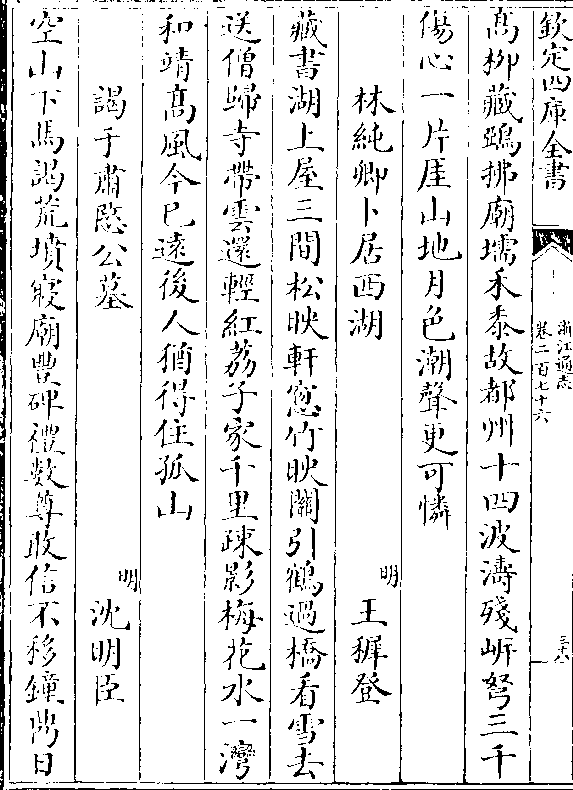 欽定四庫全書
浙江通志
卷二百七十六
三十八
高柳藏鴉拂廟壖禾黍故都州十四波濤殘岍弩三千
傷心一片厓山地月色潮聲更可憐
林純卿卜居西湖
明
王穉登
藏書湖上屋三間松映軒窓竹映關引鶴過橋看雪去
送僧歸寺帶雲還輕紅荔子家千里疎影梅花水一灣
和靖高風今已遠後人猶得住孤山
謁于肅愍公墓
明
沈明臣
空山下馬謁荒墳寢廟豐碑禮數尊敢信不移鐘𥳑日